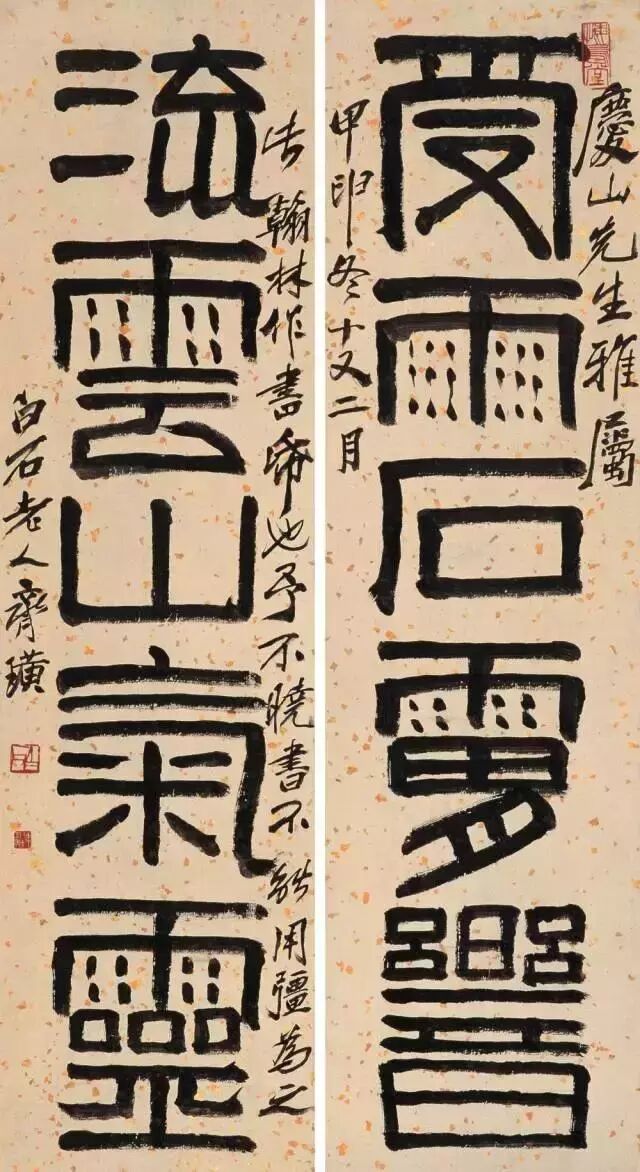 慶山先生雅屬
受雨石
甲申冬十又二月
流雲山氣靈
翰林作書 也予不曉書不能用彊為之
白石老人齊璜